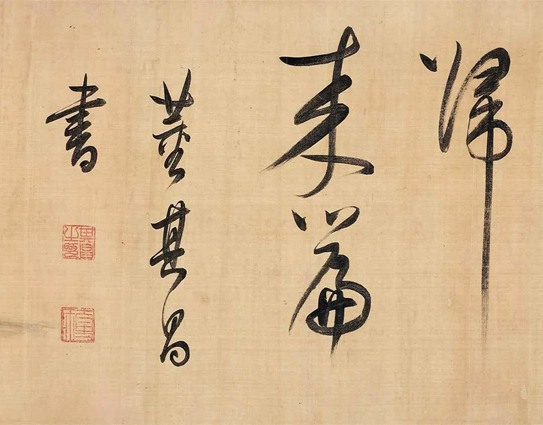 歸
来篇
董其昌
書